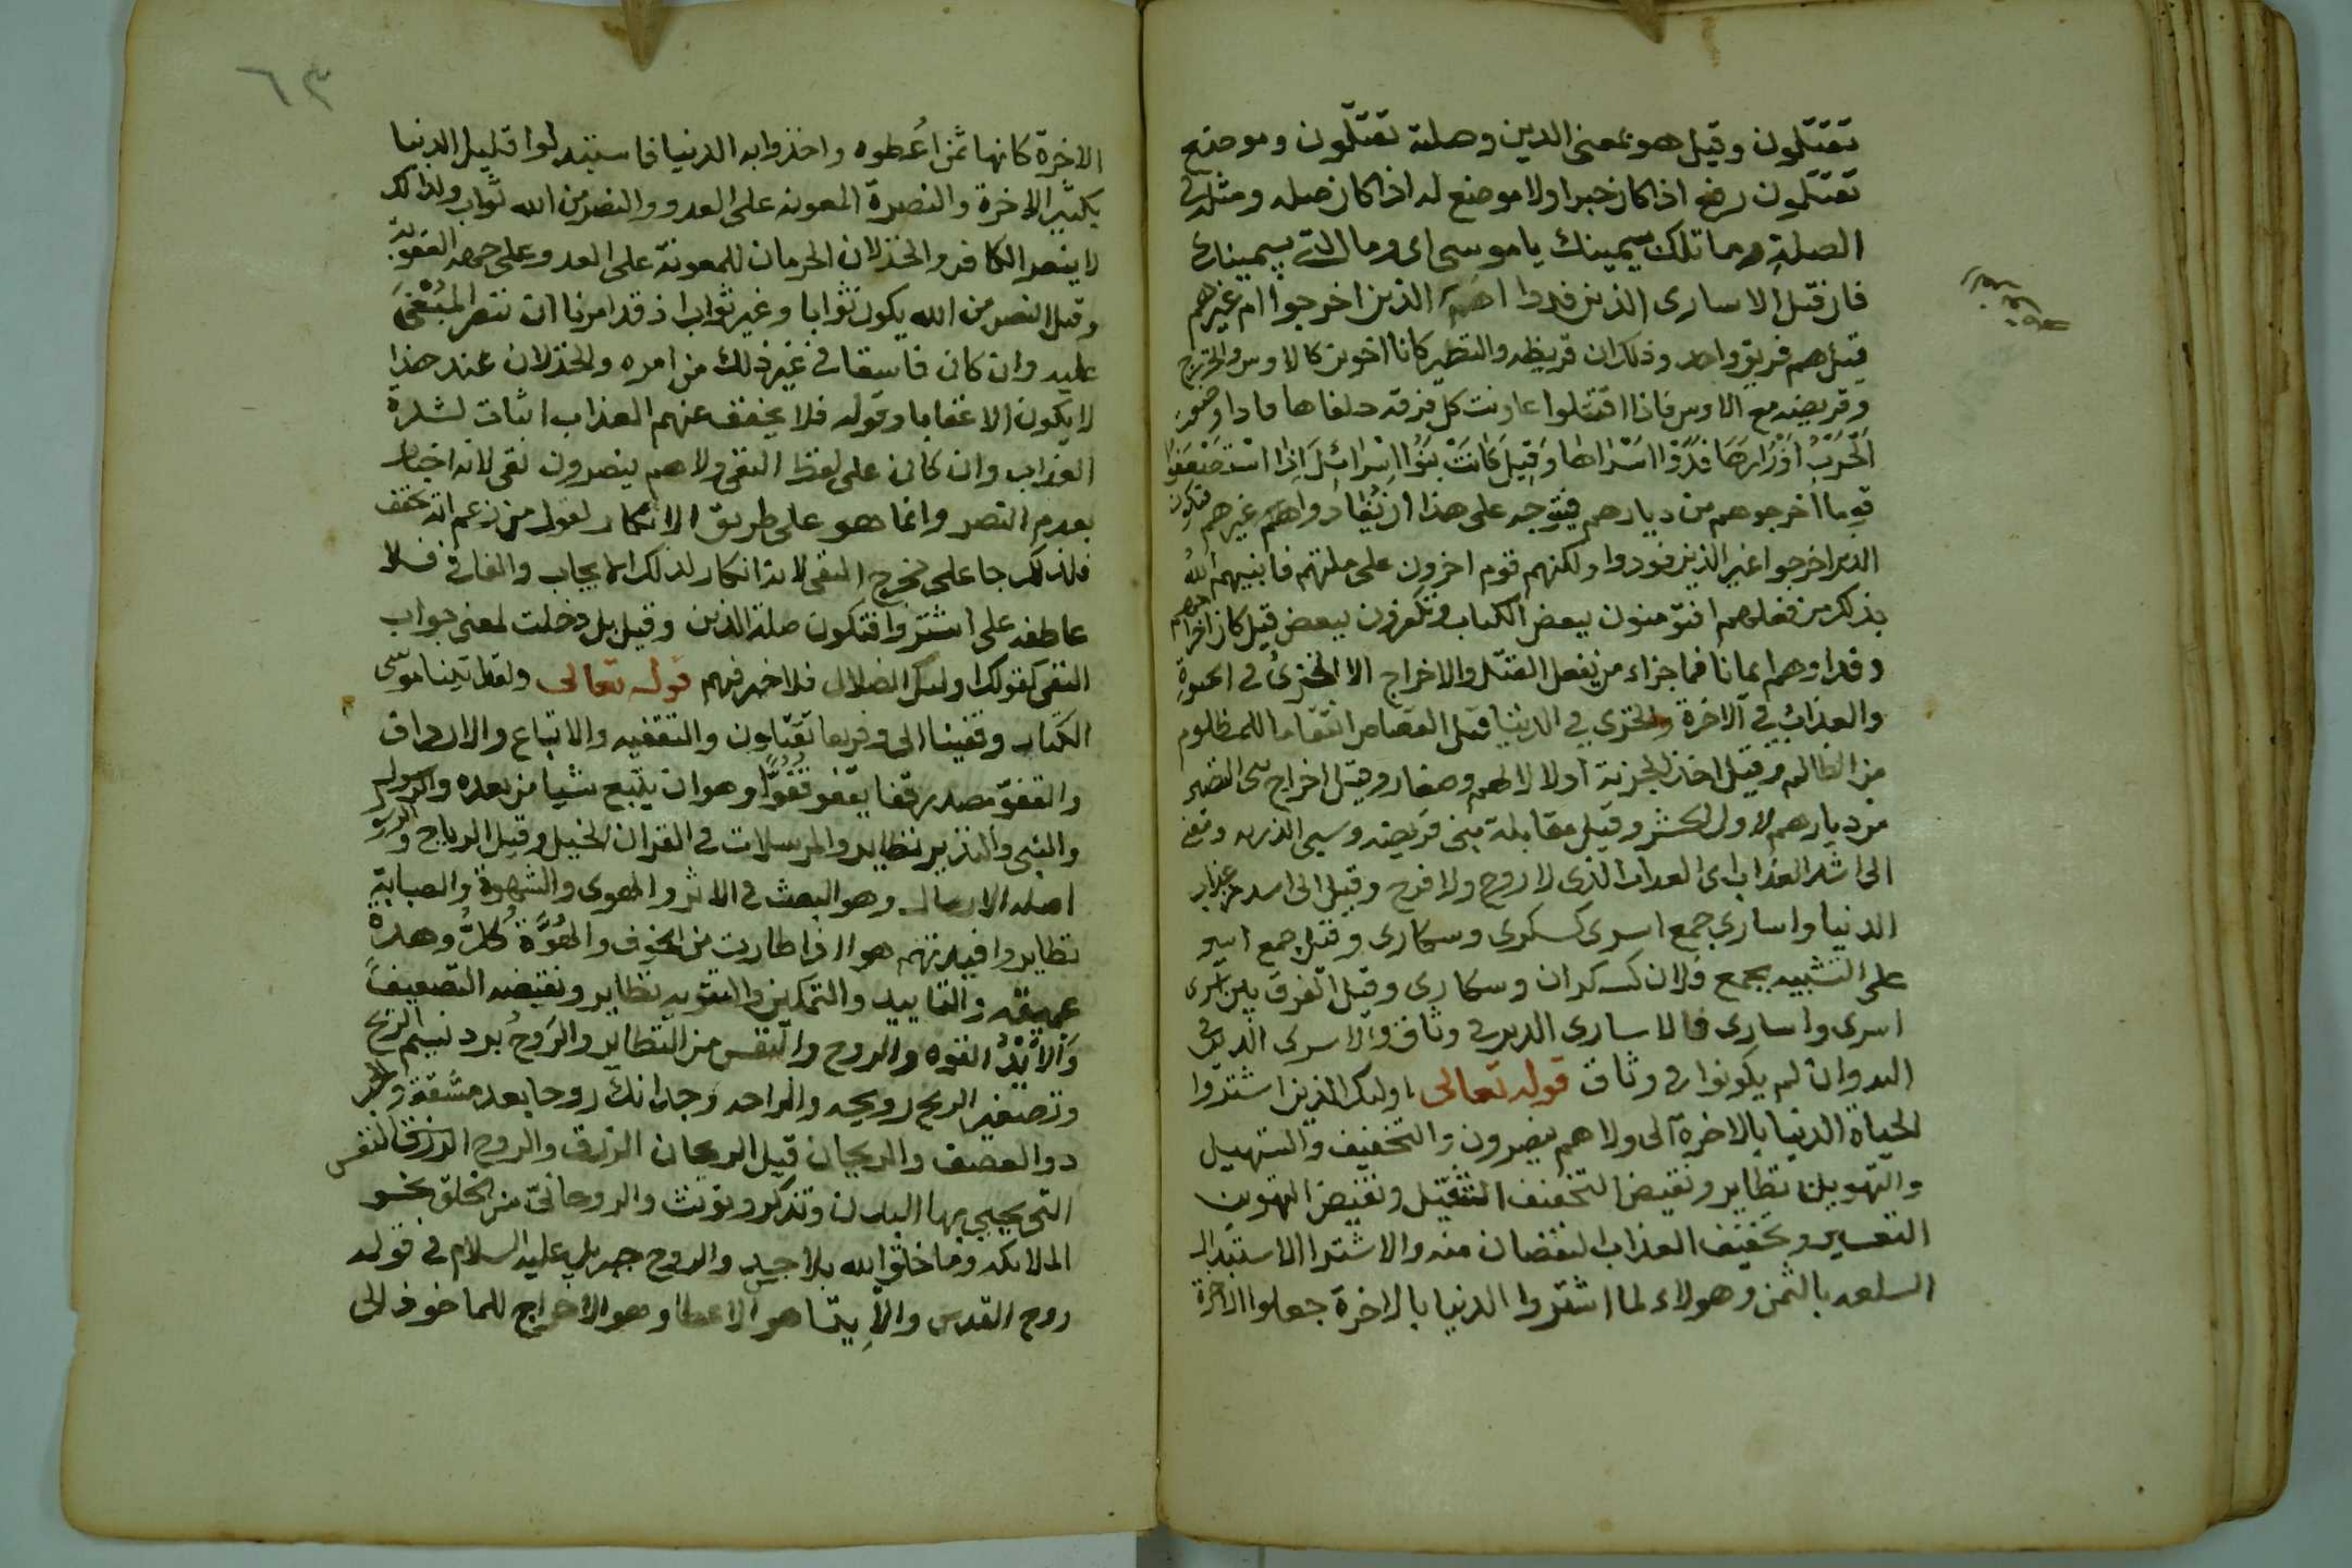 تقتلون وقيل هو بمعنى الذين وصلته تقتلون وموضع
تقتلون رفع اذا كان خبرا ولا موضع له اذا كان صله ومثله في
الصلة وما تلك بيمينك يا موسى اى وما التى بيمينك
فان قيل الاسارى الذين فدوا اهم الذين اخرجوا ام غيرهم
قيل هم فريق واحد وذلك ان قريظه والنظير كانا اخوين كالاوس والخزرج
وقريضه مع الاوس فاذا اقتتلوا عاونت كل فرقه حلفاها فاذا وضعت
الحرب اوزارها فدوا اسراها وقيل كانت بنوا اسرائل اذا استضعفوا
قوما اخرجوهم من ديارهم فيتوجه على هذا ان يفادوا هم غيرهم فيكون
الذين اخرجوا غير الذين فودوا ولكنهم قوم اخرون على ملتهم فانبهم الله
بذلك من فعلهم افتؤمنون ببعض الكتاب وتكفرون ببعض قيل كان اخراجهم
وفداوهم ايمانا فما جزاء من يفعل القتل والاخراج الا الخزى في الحيوة
والعذاب في الاخرة والخزي في الدنيا قيل القصاص انتقاما للمظلوم
من الظالم وقيل اخذ الجزية اولا لالهم وصغار وقيل اخراج بنى النضير
من ديارهم لاول الحشر وقيل مقابلة بنى قريضه وسبي الذريه
الى اشد العذاب اى العذاب الذى لا روح ولا فرح وقيل الى اشد من عذاب
الدنيا واسارى جمع اسرى كسكرى وسكارى وقيل جمع اسير
على التشبيه بجمع فلان كسكران وسكارى وقيل الفرق بين
اسرى واسارى فالاسارى الذين في وثاق والاسرى الذين في
اليد وان لم يكونوا في وثاق قوله تعالى اولئك الذين اشتروا
الحياة الدنيا بالاخرة الى ولا هم ينصرون والتخفيف والتسهيل
والتهوين نظاير ونقيض التخفيف التثقيل ونقيض التهوين
التعسير وتخفيف العذاب النقصان منه والاشترا الاستبدال
السلعه بالثمن وهولاء لما اشتروا الدنيا بالاخرة جعلوا الاخرة
٦٣
الاخرة كانها ثمن اعطوه واخذوا به الدنيا فاستبدلوا قليل الدنيا
بكثير الاخرة والنصرة المعونه على العدو والنصر من الله ثواب ولذلك
لا ينصر الكافر والخذلان الحرمان للمعونة على العدو على جهه العقوبة
وقيل النصر من الله يكون ثوابا وغير ثواب اذ قد امرنا ان ننصر المبغى
عليه وان كان فاسقا في غير ذلك من امره والخذلان عند هذا
لا يكون الا عقابا وقوله فلا يخفف عنهم العذاب اثبات لشدة
العذاب وان كان على لفظ النفى ولا هم ينصرون نفى لانه اخبار
بعدم النصر وانما هو على طريق الانكار لقول من زعم انه يخفف
فلذلك جا على مخرج النفى لانه انكار لذلك الايجاب والفا في فلا
عاطفه على اشتروا فتكون صلة الذين وقيل بل دخلت لمعنى جواب
النفى كقولك اولئك الضلال فلا خير فيهم قوله تعالى ولقد اتينا موسى
الكتاب وقفينا الى وفريقا تقتلون والتقفيه والاتباع والارداف
والقفو مصدر قفا يقفو قفوا وهو ان يتبع شيا من بعده والرسول
والنبى والنذير نظاير والمرسلات في القران الخيل وقيل الرياح
اصله الارسال وهو البعث في الاثر والهوى والشهوة والصبابة
نظاير وافيدتهم هوا اذا طارت من الخوف والهوة كل وهدة
عميقه والتاييد والتمكين والتقويه نظاير ونقيضه التضعيف
والايد القوه والروح والنفس من النظاير والروح برد نسيم الريح
وتصغير الريح رويحه والراحه وجدانك روحا بعد مشقة
ذو العصف والريحان قيل الريحان الرزق والروح الرزق النفس
التى يحيي بها البدن وتذكر وتونث والروحانى من الخلق نحو
الملائكه وما خلق الله بلا جسد والروح جبريل عليه السلام في قوله
روح القدس والايتا هو الاعطا وهو الاخراج للماخوذ الى